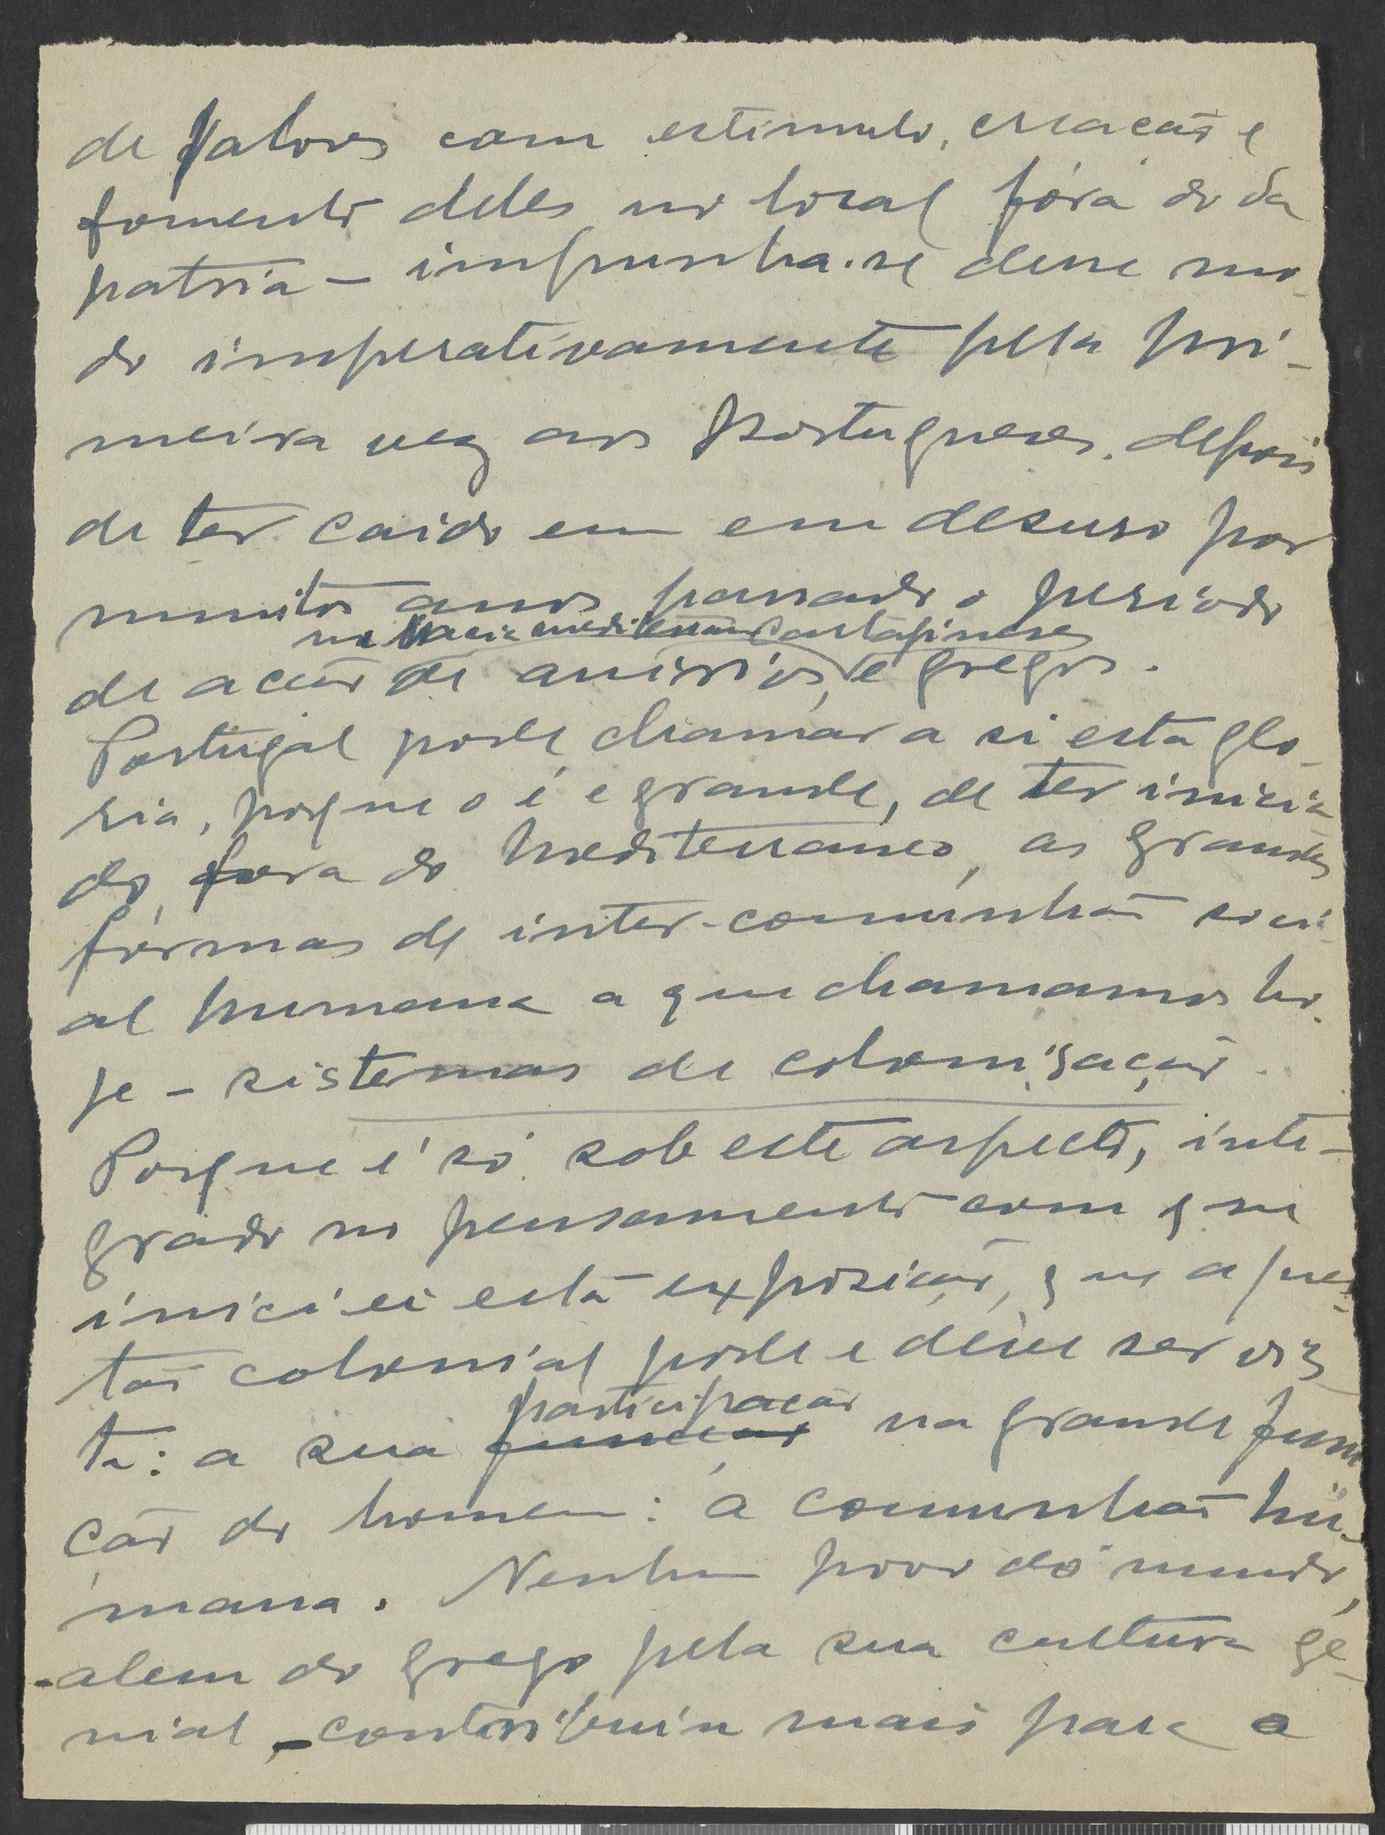 de valores com estimulo, creação e
fomento deles no local fóra do da
patria – impunha-se desse mo-
do imperativamente pela pri-
meira vez aos Portugueses, depois
de ter caido em em desuso por
muitos anos, passado o periodo
na bacia mediterranea cartagineses
de acção de assirios, e gregos.
Portugal pode chamar a si esta glo-
ria, porque o é e grande, de ter inicia
do, fora do Mediterraneo, as grandes
fórmas de inter-comunhão soci-
al humana a que chamamos ho-
je – sistemas de colonisação.
Porque é só sob este aspecto, inte-
grado no pensamento com que
iniciei esta exposição, que a ques-
tão colonial pode e deve ser vis
ta: a sua funcção participação na grande fun
ção do homem: a comunhão hu-
mana. Nenhum povo do mundo,
-alem do grego pela sua cultura ge-
nial,- contribuiu mais para a